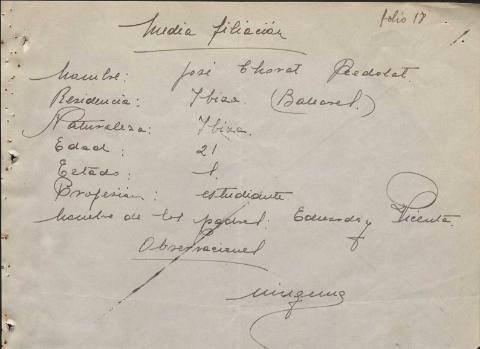 folio 17
Media filiación
Nombre: José Chorat Redolat.
Residencia: Ibiza. (Baleares.)
Naturaleza: Ibiza.
Edad: 21
Estado: s.
Profesion: estudiante
Nombre de los padres: Eduardo y Vicenta.
Observaciones
ninguna